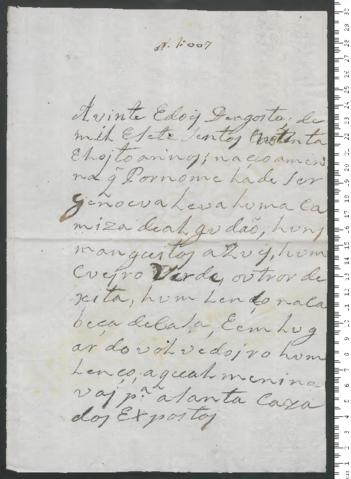 N. 1007
Avinte Edois Dergosto; de
mil E Sete Sentos Outenta
E hojto annos; naçeo a meni
na q̃ Por nome ha de Ser
genoeva Leva huma Ca
miza de algudão, huns
manguitos aZuis, hum
Cueyro Verde, outro de
xita, hum Lenço na Ca
beça de Casa, E em lug
ar do volvedoiro hum
Lenço, a qual menina
vaj p.ª a Santa Caza
dos Expostos